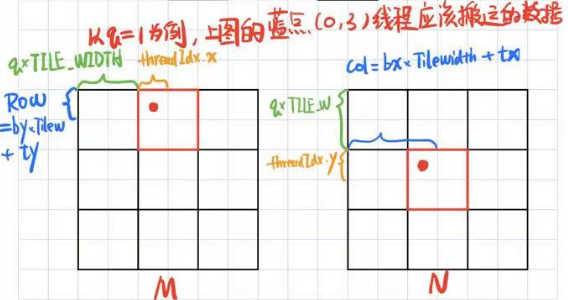 以q=1为例,上图的蓝点(0,3)线程应该搬运的数据
q×TILE_WIDTH
threadIdx.x
Row
=by×Tilew
+ ty
col=bx×Tilewidth+tx
q×TILE_W
threadIdx.y
M
N